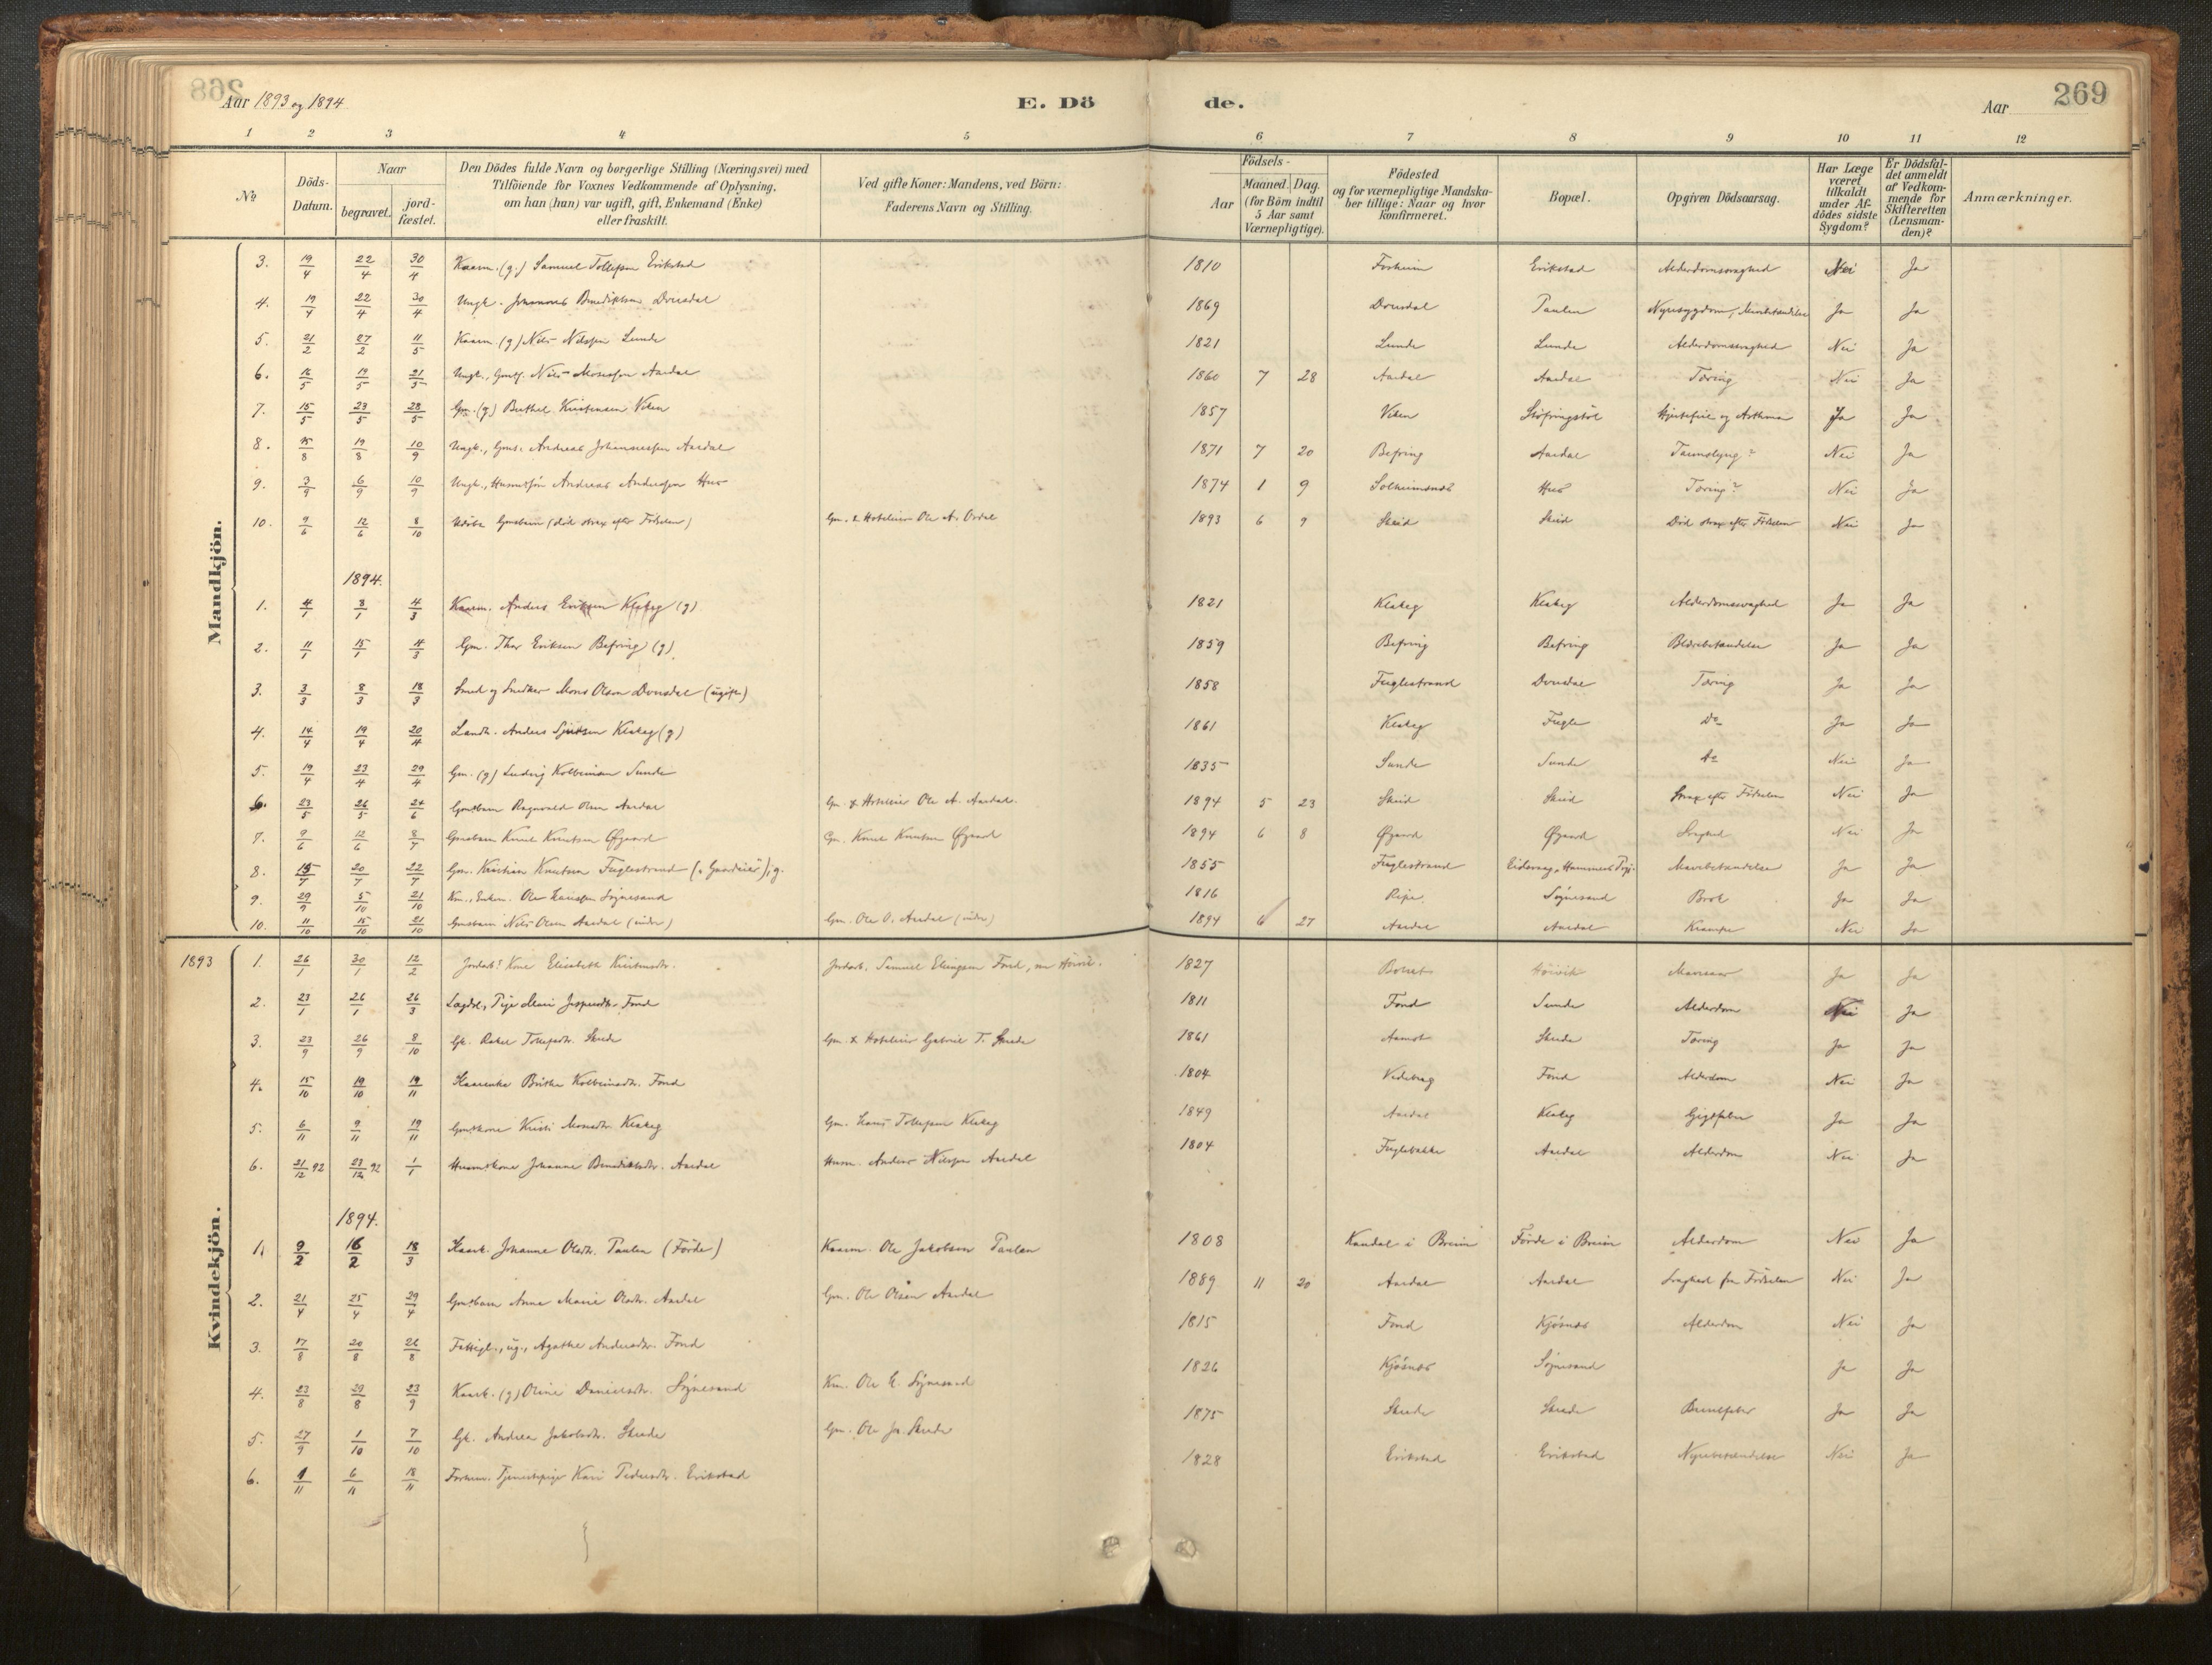 268
Aar 1893 og 1894
E. Dö
de.
Aar
269
1 2 3 4 5 6 7 8 9 10 11 12
No
Döds-Datum.
Naar
begravet.
jord-fæstet.
Den Dödes fulde Navn og borgerlige Stilling (Næringsvei) med
Tilföiende for Voxnes Vedkommende af Oplysning,
om han (hun) var ugift, gift, Enkemand (Enke)
eller fraskilt.
Ved gifte Koner: Mandens, ved Börn:
Faderens Navn og Stilling.
Födsels-
Aar
Maaned. Dag.
(for Börn indtil
5 Aar samt
Værnepligtige).
Födested
og for værnepligtige Mandska-
ber tillige: Naar og hvor
konfirmeret.
Bopæl.
Opgiven Dödsaarsag.
Har Læge
været
tilkaldt
under Af-
dödes sidste
Sygdom?
Er Dödsfal-
det anmeldt
af Vedkom-
mende for
Skifteretten
(Lensman-
den)?
Anmærkninger.
Mandkjön.
3. 19/4 22/4 30/4 Kaarm. (g.) Samuel Tollefsen Erikstad 1810 Forheim Erikstad Alderdomssvaghed Nei Ja
4. 19/4 22/4 30/4 Ungk. Johannes Benediktsen Dvergsdal 1869 Paulen Nyresygdom, Ja Ja
5. 21/2 27/2 11/5 Kaarm. (g) Nils Nilssen Lunde 1821 Lunde Lunde Alderdomssvaghed Nei Ja
6. 16/5 19/5 21/5 Ungk., Nils Monssen Aardal 1860 7 28 Aardal Aardal Tæring Nei Ja
7. 15/5 23/5 28/5 Gm. (g) Berthel Kristensen Viken 1857 Viken Støfringstøl Hjertefeil og Asthma Ja Ja
8. 15/8 19/8 10/9 Ungk., Andreas Johannessen Aardal 1871 7 20 Befring Aardal Nei Ja
9. 3/9 6/9 10/9 Ungk., Andreas Anderssen Hus 1874 1 9 Solheimsnes Hus Tæring? Nei Ja
10. 9/6 12/6 8/10 Udøbt Gmsbarn (död strax efter Födselen) Gm. & Hoteleier Ole A. 1893 6 9 Skeid Skeid Död strax efter Födselen Nei Ja
1894.
1. 4/1 8/1 4/3 Kaarm. Anders Eriksen Klakeg (g) 1821 Klakeg Klakeg Alderdomssvaghed Ja Ja
2. 11/1 15/1 4/3 Gm. Thor Eriksen Befring (g) 1859 Befring Befring Blærebetændelse Ja Ja
3. 3/3 8/3 18/3 Smed og Snedker Mons Olsen (ugift) 1858 Fuglestrand Tæring Ja Ja
4. 14/4 19/4 20/4 Landh. Anders Klakeg (g) 1861 Klakeg Fugle Do Ja Ja
5. 19/4 23/4 29/4 Gm. (g) Ludvig Kolbeinsen Sunde 1835 Sunde Sunde Do Nei Ja
6. 23/5 26/5 24/6 Gmsbarn Ragnvald Olsen Aardal Gm. & Hoteleier Ole A. Aardal. 1894 5 23 Skeid Skeid Strax efter Födselen Nei Ja
7. 9/6 12/6 8/7 Gmsbarn Knut Knutsen Øygard Gm. Knut Knutsen Øygard 1894 6 8 Øygard Øygard Svaghed Nei Ja
8. 15/7 20/7 22/7 Gm. Kristian Knutsen Fuglestrand g. 1855 Fuglestrand Mavebetændelse Ja Ja
9. 29/9 5/10 21/10 Km., Enkem. Ole Søgnesand 1816 Ripe Søgnesand Brok Ja Ja
10. 11/10 15/10 21/10 Gmsbarn Nils Olsen Aardal Gm. Ole O. Aardal 1894 6 27 Aardal Aardal Krampe Nei Ja
Kvindekjön.
1893
1. 26/1 30/1 12/2 Kone Elisabeth Kristensdtr. Jordarb. Samuel Ellingsen Fond, 1827 Høivik Ja Ja
2. 23/1 26/1 26/3 Lægdsl. Pige Mari Jespersdtr. Fonde 1811 Fond Sunde Alderdom Nei Ja
3. 23/9 26/9 8/10 Gk. Rakel Tollefsdtr. Skrede Gm. & Hoteleier Gabriel T. Skrede 1861 Aamot Skrede Tæring Ja Ja
4. 15/10 19/10 19/11 Kaarenke Brithe Kolbeinsdtr. Fond 1804 Fond Alderdom Nei Ja
5. 6/11 9/11 19/11 Gmskone Kristi Monsdtr. Klakeg Gm. Hans Tollefsen Klakeg 1849 Aardal Klakeg Gigtfeber Ja Ja
6. 21/12 92 23/12 92 1/1 Husmkone Johanne Benediktsdtr. Aardal Husm. Anders Nilssen Aardal 1804 Fuglebakke Aardal Alderdom Nei Ja
1894.
1. 9/2 16/2 18/3 Kaark. Johanne Olsdtr. Paulen (Förde) Kaarm. Ole Jakobsen Paulen 1808 Kandal i Breim Förde i Breim Alderdom Nei Ja
2. 21/4 25/4 29/4 Gmsbarn Anna Marie Olsdtr. Aardal Gm. Ole Olsen Aardal 1889 11 20 Aardal Aardal Svaghed fra Födselen Nei Ja
3. 17/8 20/8 26/8 Fattigl., ug., Agathe Andersdtr. Fond 1815 Fond Kjösnes Alderdom Nei Ja
4. 23/8 29/8 23/9 Kaark. (g) Oline Danielsdtr. Søgnesand Km. Ole Søgnesand 1826 Kjösnes Søgnesand Ja Ja
5. 27/9 1/10 7/10 Gk. Andrea Jakobsdtr. Skrede Gm. Ole Skrede 1875 Skrede Skrede Ja Ja
6. 1/11 6/11 18/11 Forhen. Tjenestepige Kari Pedersdtr. Erikstad 1828 Erikstad Erikstad Nyrebetændelse Nei Ja